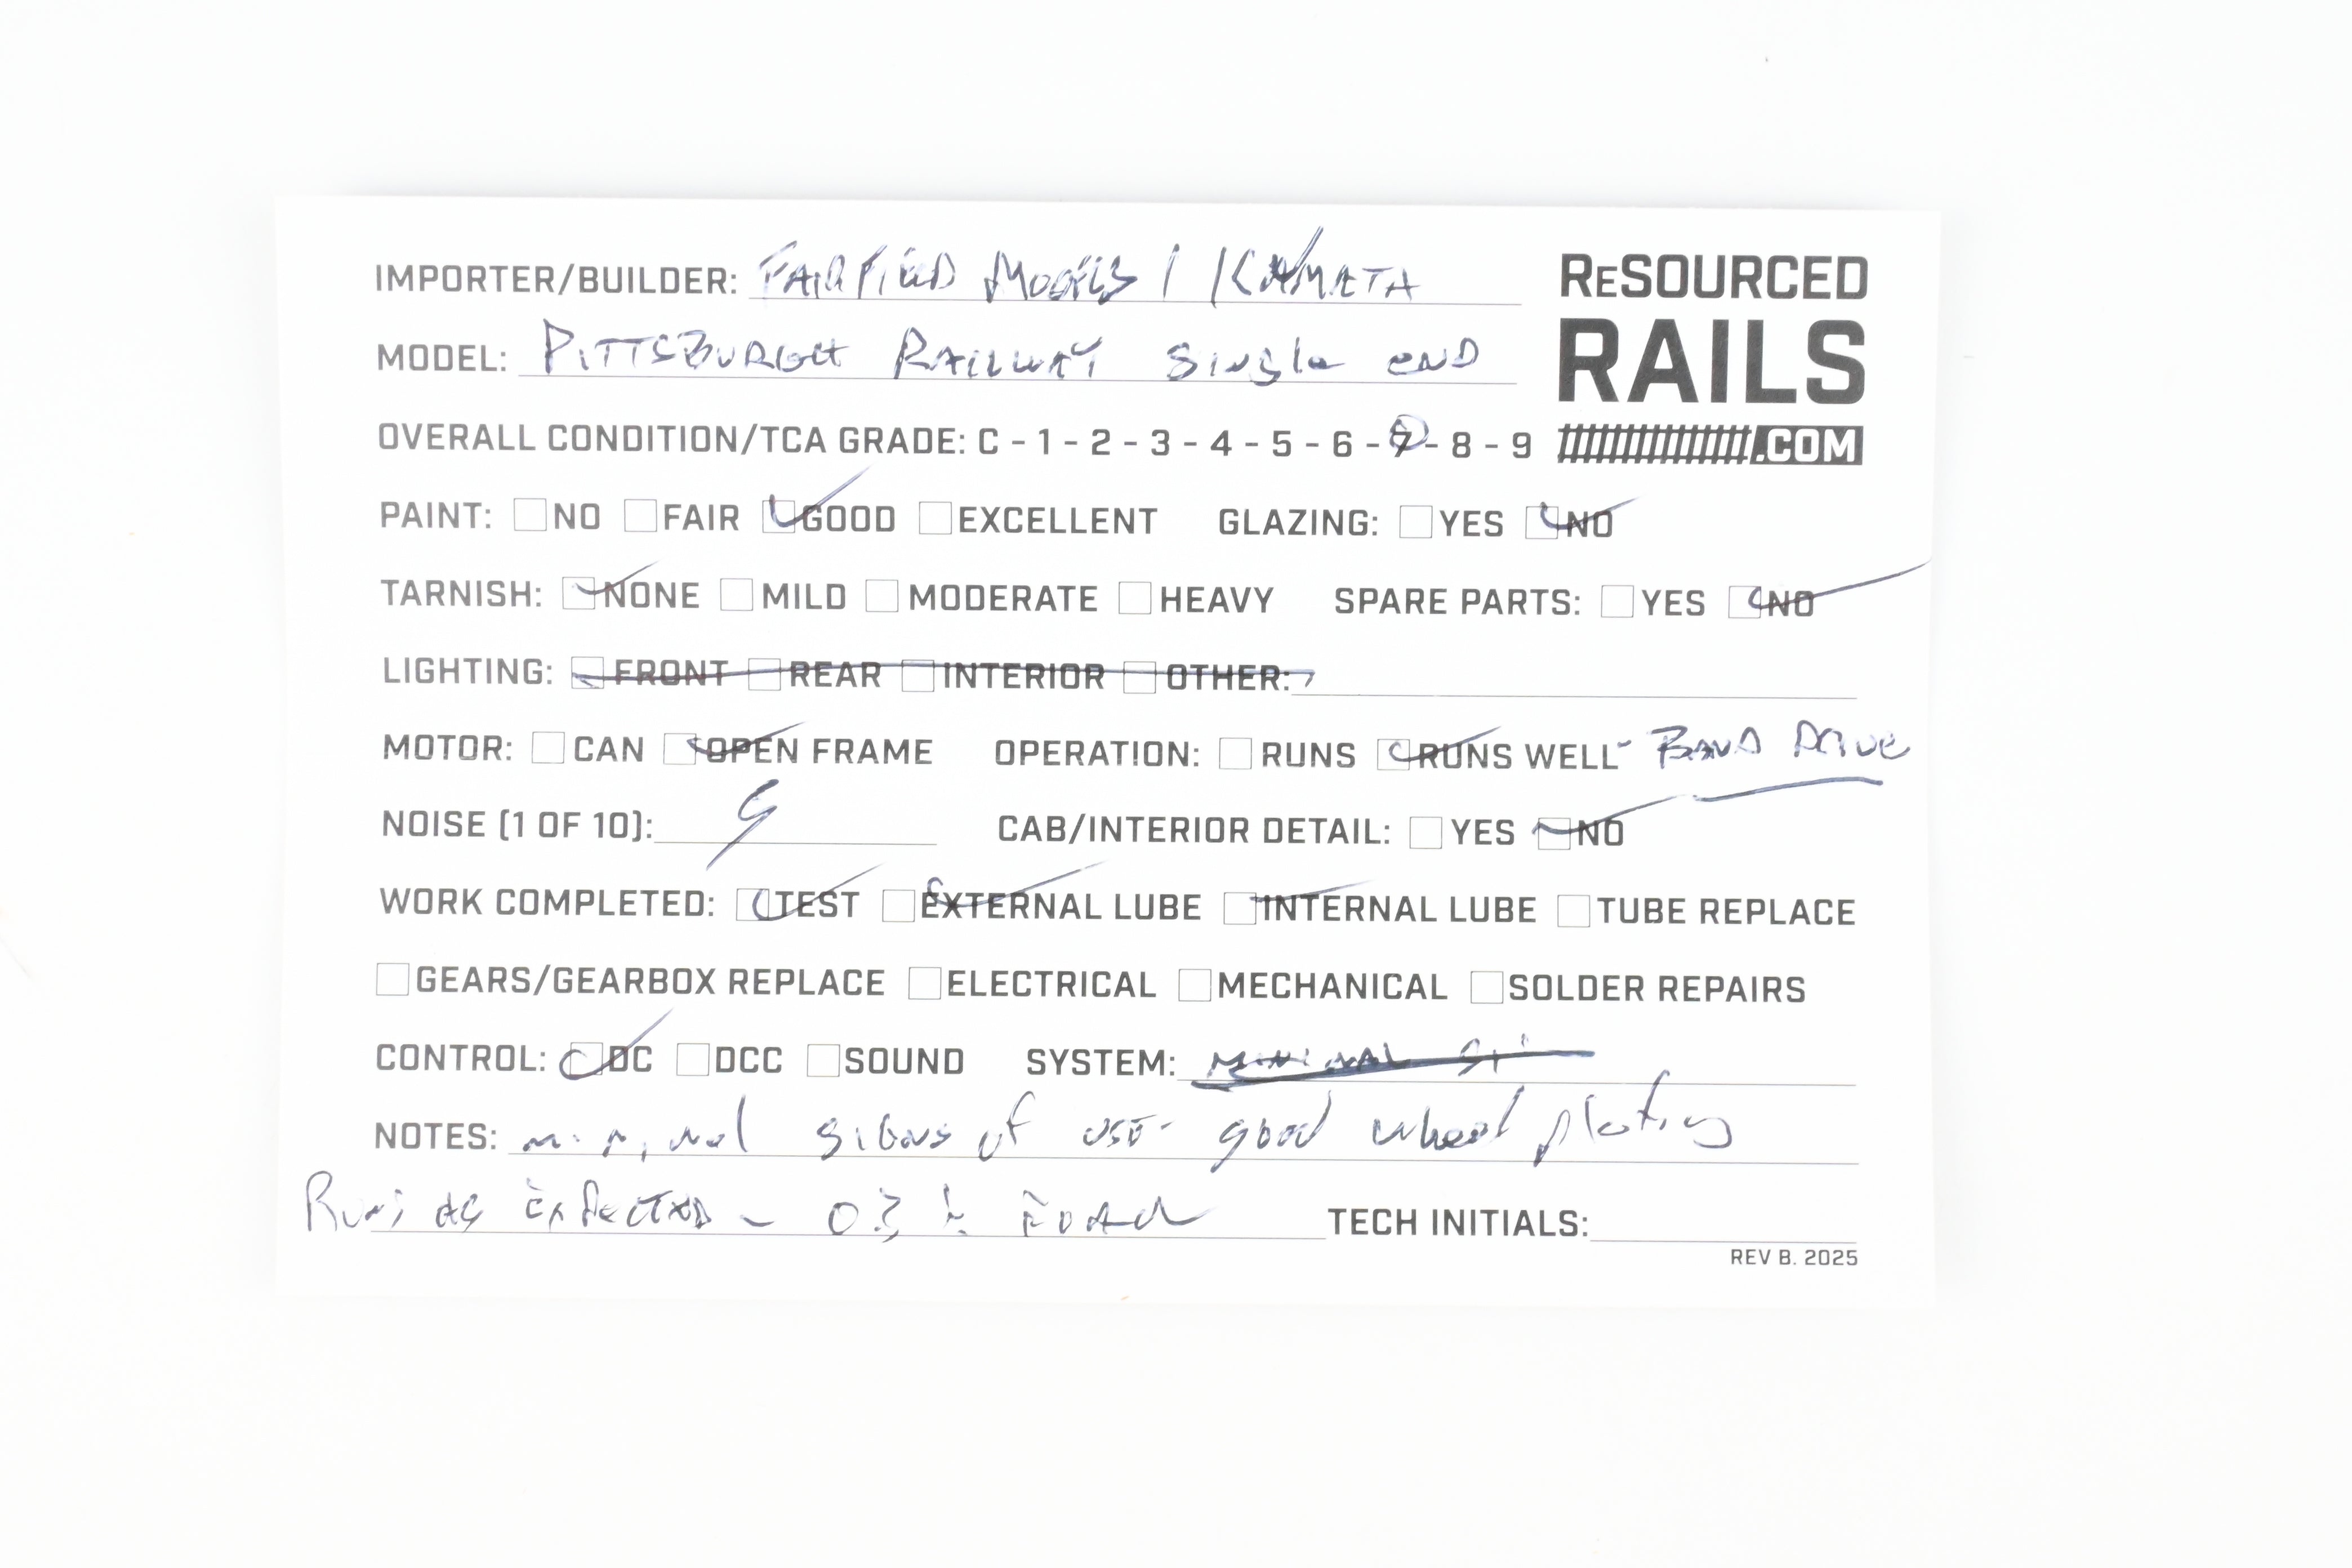 IMPORTER/BUILDER: FAIRFIELD MODELS / KAMATA
RESOURCED
RAILS
.COM
MODEL: PITTSBURGH RAILWAY SINGle END
OVERALL CONDITION/TCA GRADE: C - 1 - 2 - 3 - 4 - 5 - 6 - 7 - 8 - 9
PAINT: NO FAIR GOOD EXCELLENT GLAZING: YES NO
TARNISH: NONE MILD MODERATE HEAVY SPARE PARTS: YES NO
LIGHTING: FRONT REAR INTERIOR OTHER:
MOTOR: CAN OPEN FRAME OPERATION: RUNS RUNS WELL - BAND DRIVE
NOISE (1 OF 10): CAB/INTERIOR DETAIL: YES NO
WORK COMPLETED: TEST EXTERNAL LUBE INTERNAL LUBE TUBE REPLACE
GEARS/GEARBOX REPLACE ELECTRICAL MECHANICAL SOLDER REPAIRS
CONTROL: DC DCC SOUND SYSTEM:
NOTES: minimal SIGNS of USE - good wheel plating
RUNS AS EXPECTED -
TECH INITIALS:
REV B. 2025